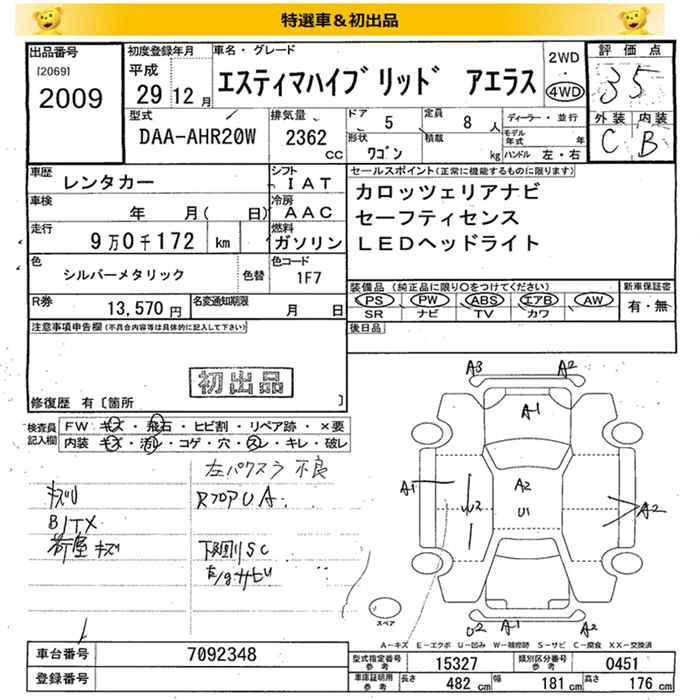 特選車＆初出品
出品番号
[2069]
2009
初度登録年月
平成
29 12月
車名・グレード
エスティマハイブリッド アエラス
2WD
・
4WD
評価点
35
外装 内装
C B
型式
DAA-AHR20W
排気量
2362
CC
ドア 5
定員 8人
形状 ワゴン
積載 kg
ディーラー・並行
モデル年式 年
ハンドル 左・右
車歴 レンタカー
シフト IAT
車検 年 月( 日)
冷房 AAC
走行 9万0千172 km
燃料 ガソリン
色 シルバーメタリック 色替
色コード 1F7
R券 13,570円
名変通知期限 月 日
セールスポイント(正常に機能するものに限ります)
カロッツェリアナビ
セーフティセンス
LEDヘッドライト
装備品(純正品に限り○をつけてください)
新車保証書
PS PW ABS エアB AW
有・無
SR ナビ TV カワ
後日品
注意事項申告欄(不具合内容等は具体的に記入して下さい)
初出品
修復歴 有〔箇所 〕
検査員記入欄
FW キズ・飛石・ヒビ割・リペア跡・×要
内装 キズ・汚レ・コゲ・穴・スレ・キレ・破レ
不良
キズU
RフロアUA
B/TX
荷室キズ
下回りSC
E/gサビU
A3 A2
A1
A1
A2
U2
U1
A2
U2 A1 A2
スペア
A-キズ E-エクボ U-凹み W-補修跡 S-サビ C-腐食 XX-交換済
車台番号 7092348
登録番号
型式指定番号 参考 15327
類別区分番号 参考 0451
車庫証明用 参考 長さ 482 cm 幅 181 cm 高さ 176 cm